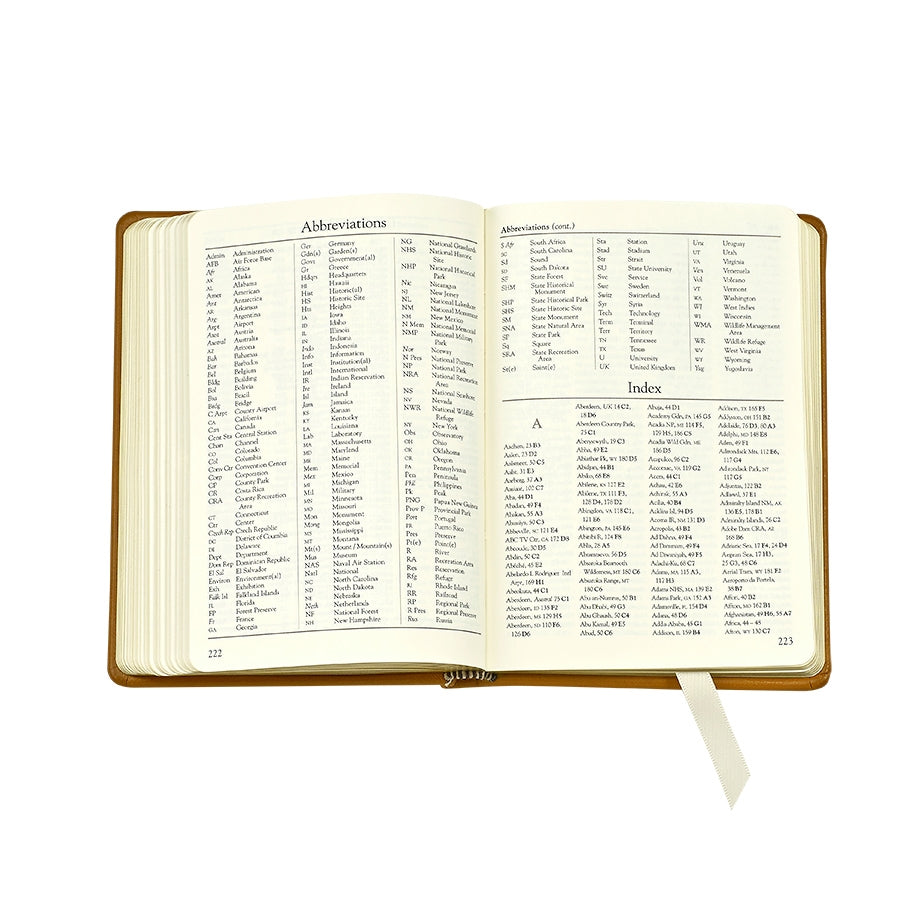 Abbreviations
Admin Administration
AFB Air Force Base
Afr Africa
AK Alaska
AL Alabama
Amer American
Ant Antarctica
AR Arkansas
Arg Argentina
Arpt Airport
Aust Austria
Austral Australia
AZ Arizona
Bah Bahamas
Bar Barbados
Bel Belgium
Bldg Building
Bol Bolivia
Bra Brazil
Brdg Bridge
C Arpt County Airport
CA California
Can Canada
Cent Sta Central Station
Chan Channel
CO Colorado
Col Columbia
Conv Ctr Convention Center
Corp Corporation
CP County Park
CR Costa Rica
CRA County Recreation
Area
CT Connecticut
Ctr Center
Czech Rep Czech Republic
DC District of Columbia
DE Delaware
Dept Department
Dom Rep Dominican Republic
El Sal El Salvador
Environ Environment(al)
Exh Exhibition
Falk Isl Falkland Islands
FL Florida
FP Forest Preserve
Fr France
GA Georgia
Ger Germany
Gdn(s) Garden(s)
Govt Government(al)
Gr Greece
Hdqrs Headquarters
HI Hawaii
Hist Historic(al)
HS Historic Site
Hts Heights
IA Iowa
ID Idaho
IL Illinois
IN Indiana
Indo Indonesia
Info Information
Inst Institution(al)
Intl International
IR Indian Reservation
Ire Ireland
Isl Island
Jam Jamaica
KS Kansas
KY Kentucky
LA Louisiana
Lab Laboratory
MA Massachusetts
MD Maryland
ME Maine
Mem Memorial
Mex Mexico
MI Michigan
Mil Military
MN Minnesota
MO Missouri
Mon Monument
Mong Mongolia
MS Mississippi
MT Montana
Mt(s) Mount / Mountain(s)
Mus Museum
NAS Naval Air Station
Natl National
NC North Carolina
ND North Dakota
NE Nebraska
Neth Netherlands
NF National Forest
NH New Hampshire
NG National Grasslands
NHS National Historic
Site
NHP National Historical
Park
Nic Nicaragua
NJ New Jersey
NL National Lakeshore
NM National Monument
NM New Mexico
N Mem National Memorial
NMP National Military
Park
Nor Norway
N Pres National Preserve
NP National Park
NRA National Recreation
Area
NS National Seashore
NV Nevada
NWR National Wildlife
Refuge
NY New York
Obs Observatory
OH Ohio
OK Oklahoma
OR Oregon
PA Pennsylvania
Pen Peninsula
Phil Philippines
Pk Peak
PNG Papua New Guinea
Prov P Provincial Park
Port Portugal
PR Puerto Rico
Pres Preserve
Pt(e) Point(e)
R River
RA Recreation Area
Res Reservation
Rfg Refuge
RI Rhode Island
RR Railroad
RP Regional Park
R Pres Regional Preserve
Rus Russia
222
Abbreviations (cont.)
S Afr South Africa
SC South Carolina
Sd Sound
SD South Dakota
SF State Forest
SHM State Historical
Monument
SHP State Historical Park
SHS State Historic Site
SM State Monument
SNA State Natural Area
SP State Park
Sq Square
SRA State Recreation
Area
St(e) Saint(e)
Sta Station
Stad Stadium
Str Strait
SU State University
Svc Service
Swe Sweden
Switz Switzerland
Syr Syria
Tech Technology
Term Terminal
Terr Territory
TN Tennessee
TX Texas
U University
UK United Kingdom
Uru Uruguay
UT Utah
VA Virginia
Ven Venezuela
Vol Volcano
VT Vermont
WA Washington
WI West Indies
WI Wisconsin
WMA Wildlife Management
Area
WR Wildlife Refuge
WV West Virginia
WY Wyoming
Yug Yugoslavia
Index
A
Aachen, 23 B3
Aalen, 23 D2
Aalsmeer, 50 C5
Aalst, 31 E3
Aarau, 36 B1
Abadan, 49 F4
Abakan, 55 A3
Abbeville, SC 121 E4
ABC TV Ctr, CA 172 D8
Abeokuta, 44 C1
Aberdeen, Austral 75 C1
Aberdeen, ID 138 F2
Aberdeen, MS 129 H5
Aberdeen, SD 110 F6,
126 D6
Aberdeen, UK 18 C2,
18 D6
Aberdeen County Park,
25 C1
Aberystwyth, 19 C3
Abha, 49 E2
Abidjan, 44 B1
Abilene, KS 127 E2
Abilene, TX 111 F3,
128 D4, 176 D2
Abingdon, VA 118 C1,
121 E6
Abington, PA 145 E6
Absaroka Range, MT
180 C6
Abu Dhabi, 49 G3
Abu Ghaush, 50 C4
Abu Kamal, 49 E5
Abud, 50 C6
Abuja, 44 D1
Academy Gdn, PA 145 G5
Acadia NP, ME 114 F5,
129 H5, 186 C5
Acadia Wild Gdn, ME
186 D5
Acapulco, 96 C2
Accra, 44 C1
Ad Dahna, 49 F4
Ad Dammam, 49 F4
Addis Ababa, 45 G1
Addison, IL 159 B4
Addison, TX 165 F3
Addyston, OH 151 B2
Adelaide, 76 D3, 80 A3
Adelphi, MD 148 E8
Aden, 49 F1
Adirondack Mts, 112 E6,
117 G4
Adirondack Park, NY
117 G3
Admiralty Island NM, AK
136 E5, 178 B1
Admiralty Islands, 76 C2
Adobe Dam CRA, AZ
168 B6
Adriatic Sea, 17 F4, 24 D4
Aegean Sea, 17 H3,
25 G3, 48 C6
Afghanistan, 49 H6, 55 A7
Africa, 44 – 45
Afton, WY 130 C7
223